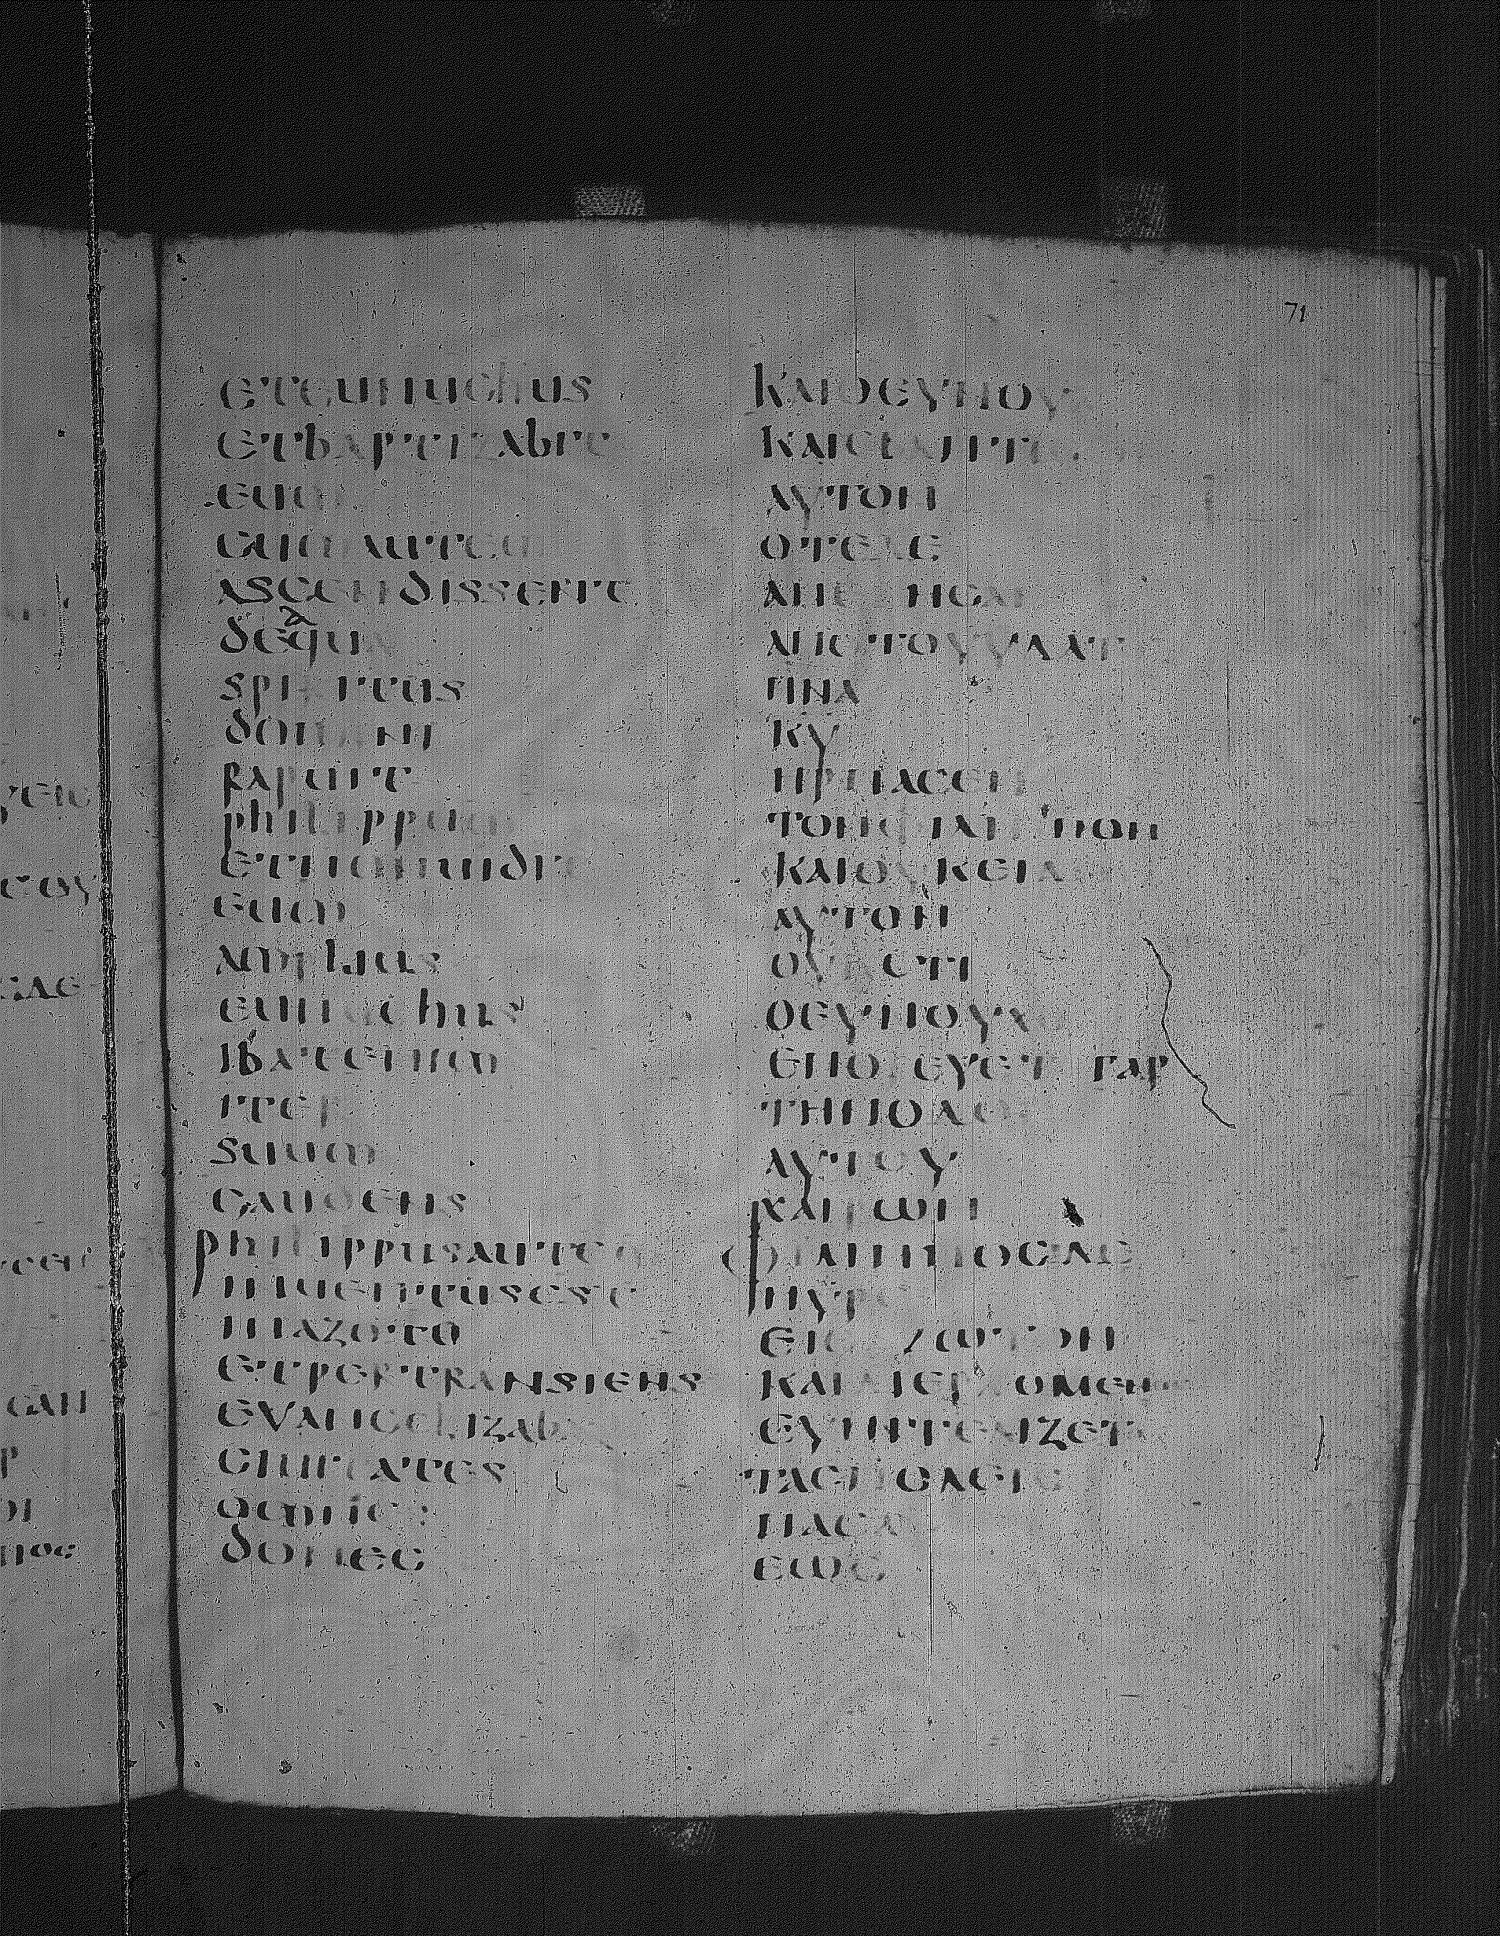 71
eteunuchus
etbaptizabit
eum
cumautem
ascendissent
deaqua
spiritus
domini
rapuit
philippum
etnonuidit
eum
amplius
eunuchus
ibatenim
iter
suum
gaudens
philippusautem
inuentusest
inazoto
etpertransiens
evangelizabat
ciuitates
omnes
donec
ΚΑΙΟΕΥΝΟΥ
ΚΑΙΕΒΑΠΤΙ
ΑΥΤΟΝ
ΟΤΕΔΕ
ΑΝΕΒΗCΑΝ
ΑΠΟΤΟΥΥΔΑΤ
ΠΝΑ
ΚΥ
ΗΡΠΑCΕΝ
ΤΟΝΦΙΛΙΠΠΟΝ
ΚΑΙΟΥΚΕΙΔ
ΑΥΤΟΝ
ΟΥΚΕΤΙ
ΟΕΥΝΟΥΧ
ΕΠΟΡΕΥΕΤ ΓΑΡ
ΤΗΝΟΔΟ
ΑΥΤΟΥ
ΧΑΙΡΩΝ
ΦΙΛΙΠΠΟCΔΕ
ΗΥΡΕ
ΕΙCΑΖΩΤΟΝ
ΚΑΙΔΙΕΡΧΟΜΕΝ
ΕΥΗΓΓΕΛΙΖΕΤ
ΤΑCΠΟΛΕΙC
ΠΑCΑ
ΕΩC